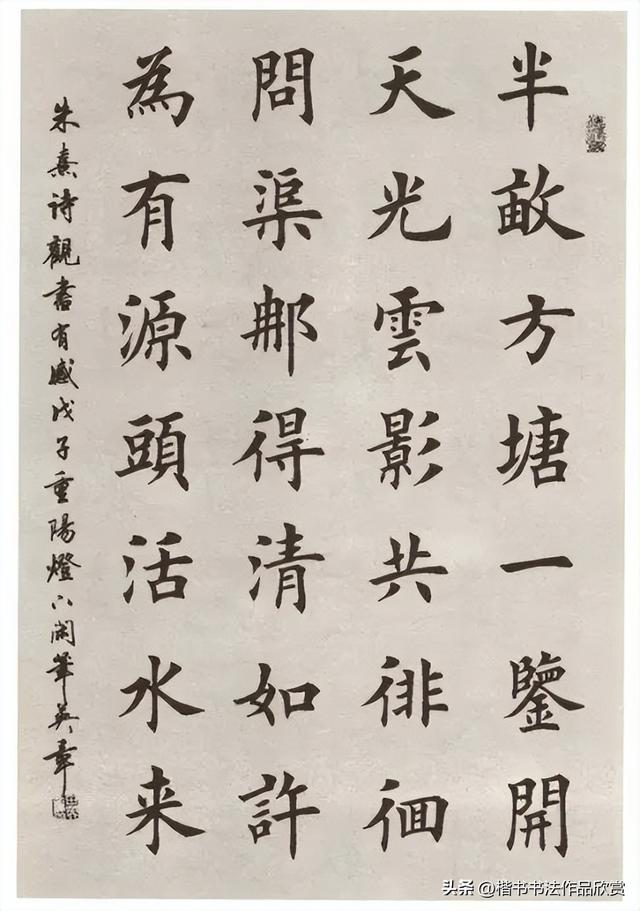 半畝方塘一鑒開
天光雲影共徘徊
問渠那得清如許
為有源頭活水来
朱熹诗觀書有感戊子重陽燈下開筆英章
头条 @楷书书法作品欣赏